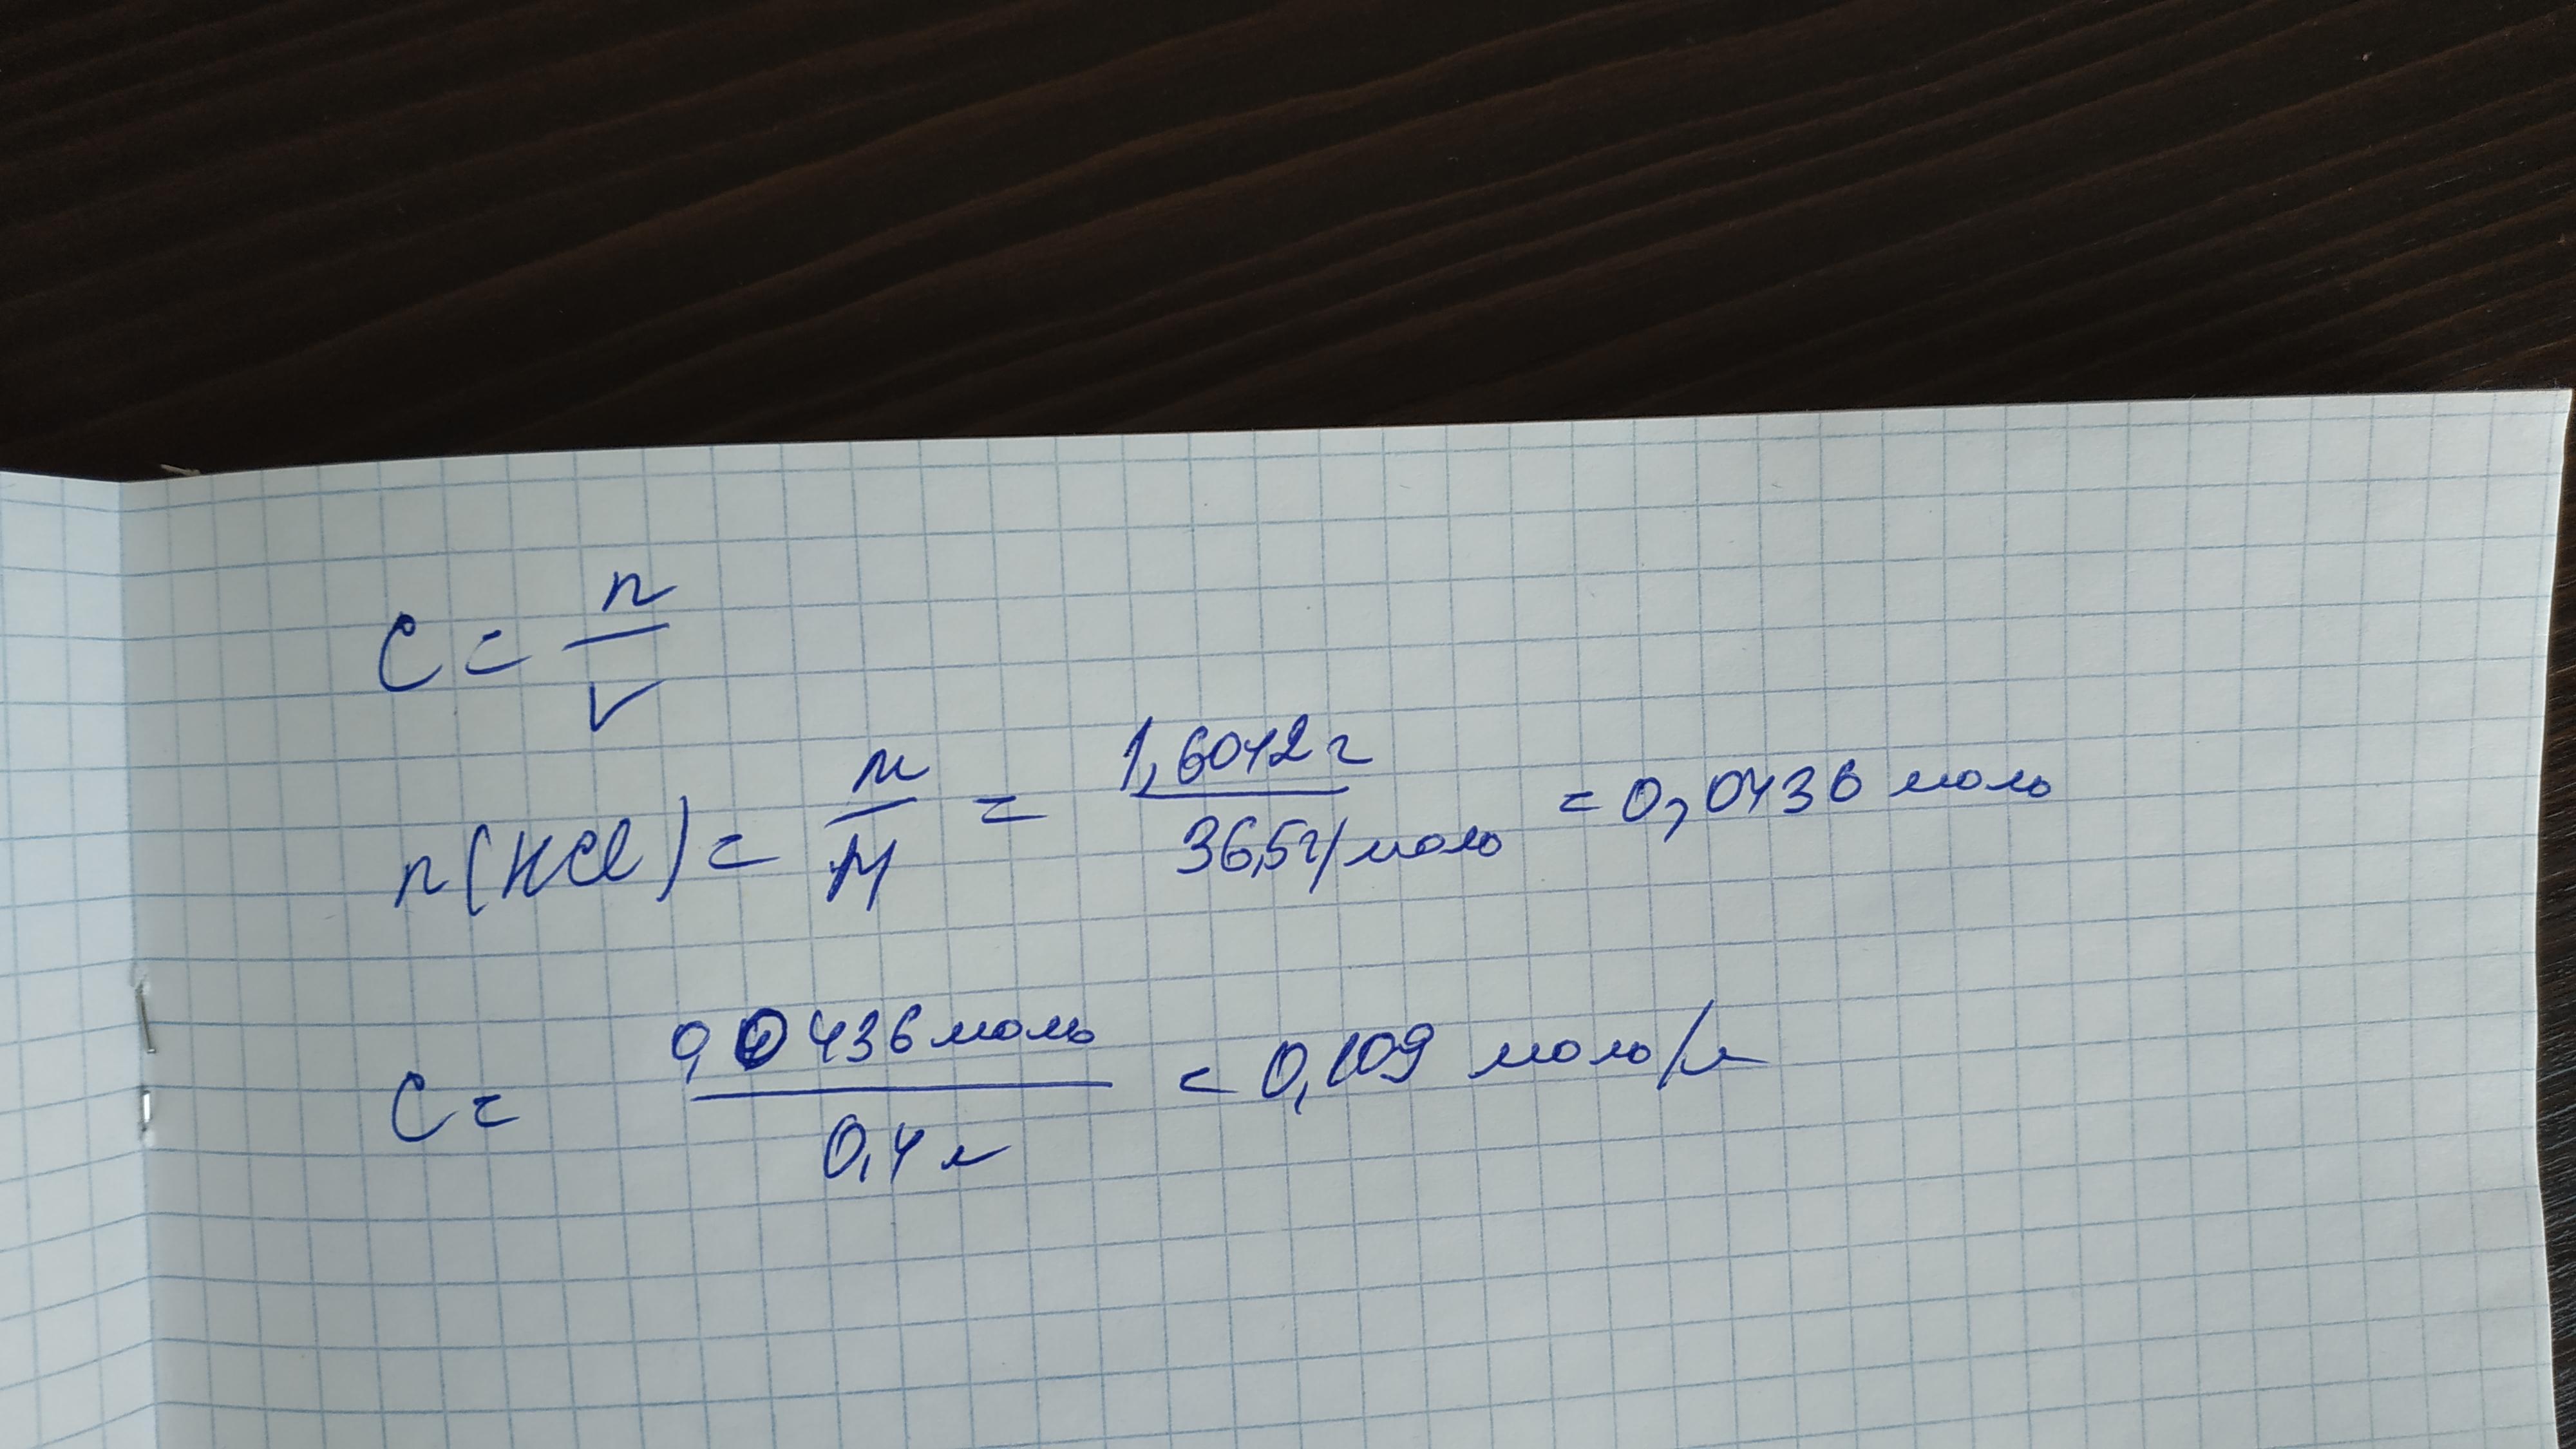 C = n/V
n(HCl) = m/M = 1,6042 г / 36,5 г/моль = 0,0436 моль
C = 0,0436 моль / 0,4 л = 0,109 моль/л